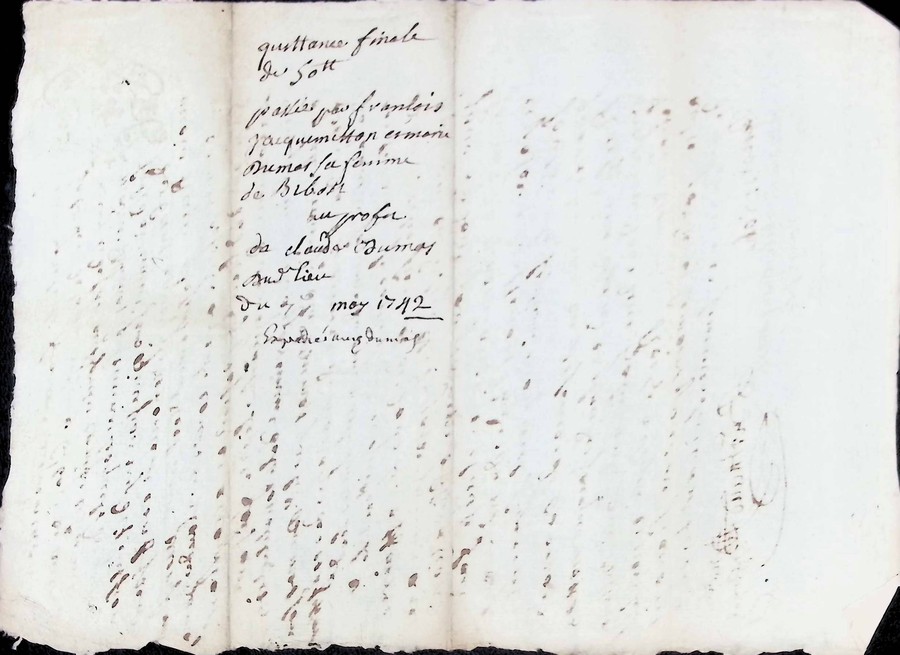 quittance finale
de 50tt
passée par francois
Jacquemetton et marie
Dumas sa femme
de Bibost
au profit
de claude Dumas
Dud lieu
Du 7 may 1742
Expediée aux dumas